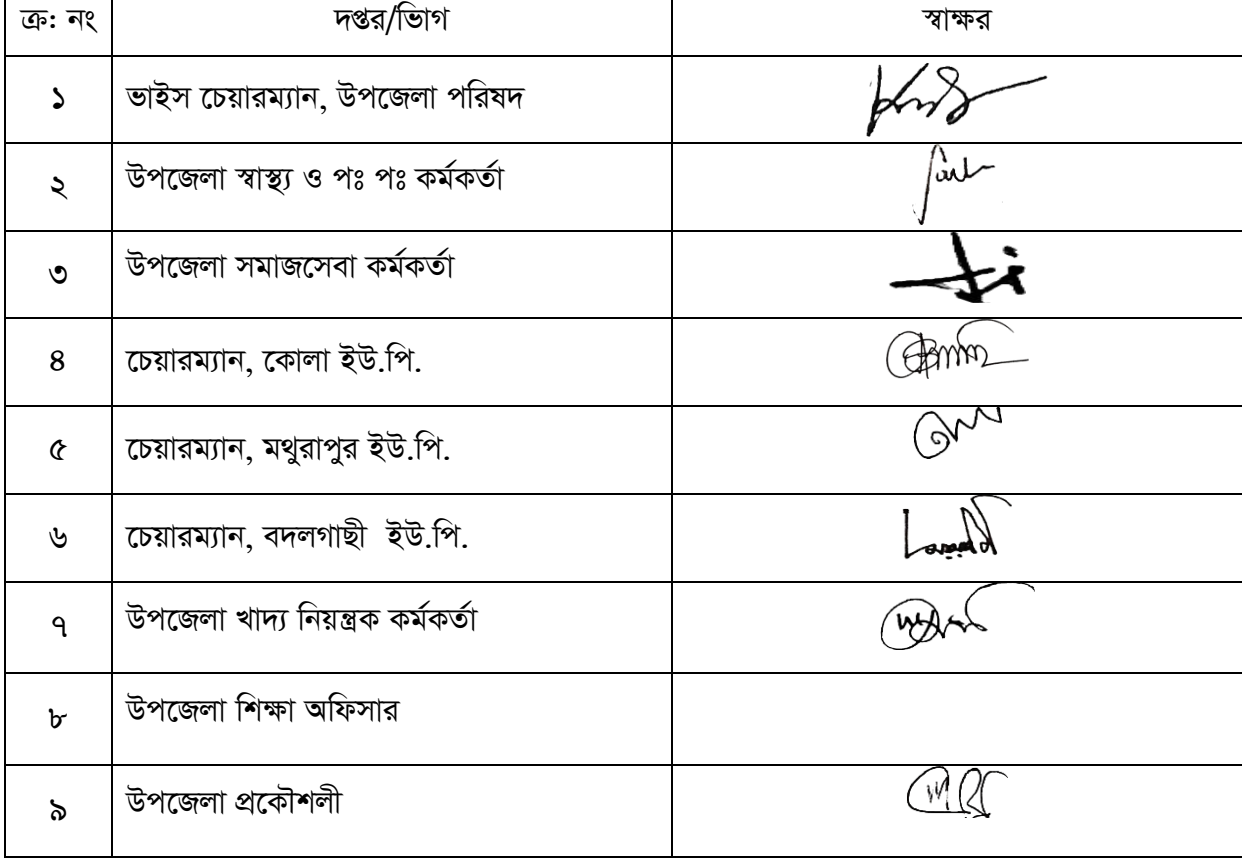 ক্র: নং দপ্তর/ভিাগ স্বাক্ষর
১ ভাইস চেয়ারম্যান, উপজেলা পরিষদ
২ উপজেলা স্বাস্থ্য ও পঃ পঃ কর্মকর্তা
৩ উপজেলা সমাজসেবা কর্মকর্তা
৪ চেয়ারম্যান, কোলা ইউ.পি.
৫ চেয়ারম্যান, মথুরাপুর ইউ.পি.
৬ চেয়ারম্যান, বদলগাছী ইউ.পি.
৭ উপজেলা খাদ্য নিয়ন্ত্রক কর্মকর্তা
৮ উপজেলা শিক্ষা অফিসার
৯ উপজেলা প্রকৌশলী